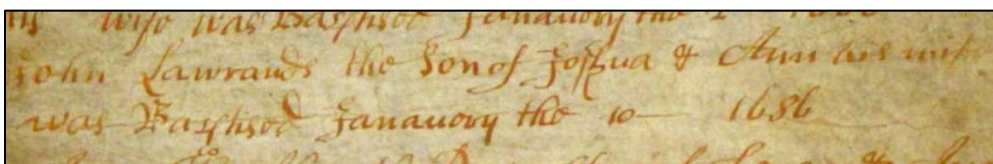 wife was Baptised Januarory the
John Lawrands the Son of Joshua & Ann his wife
was Baptised Januarory the 10 1686